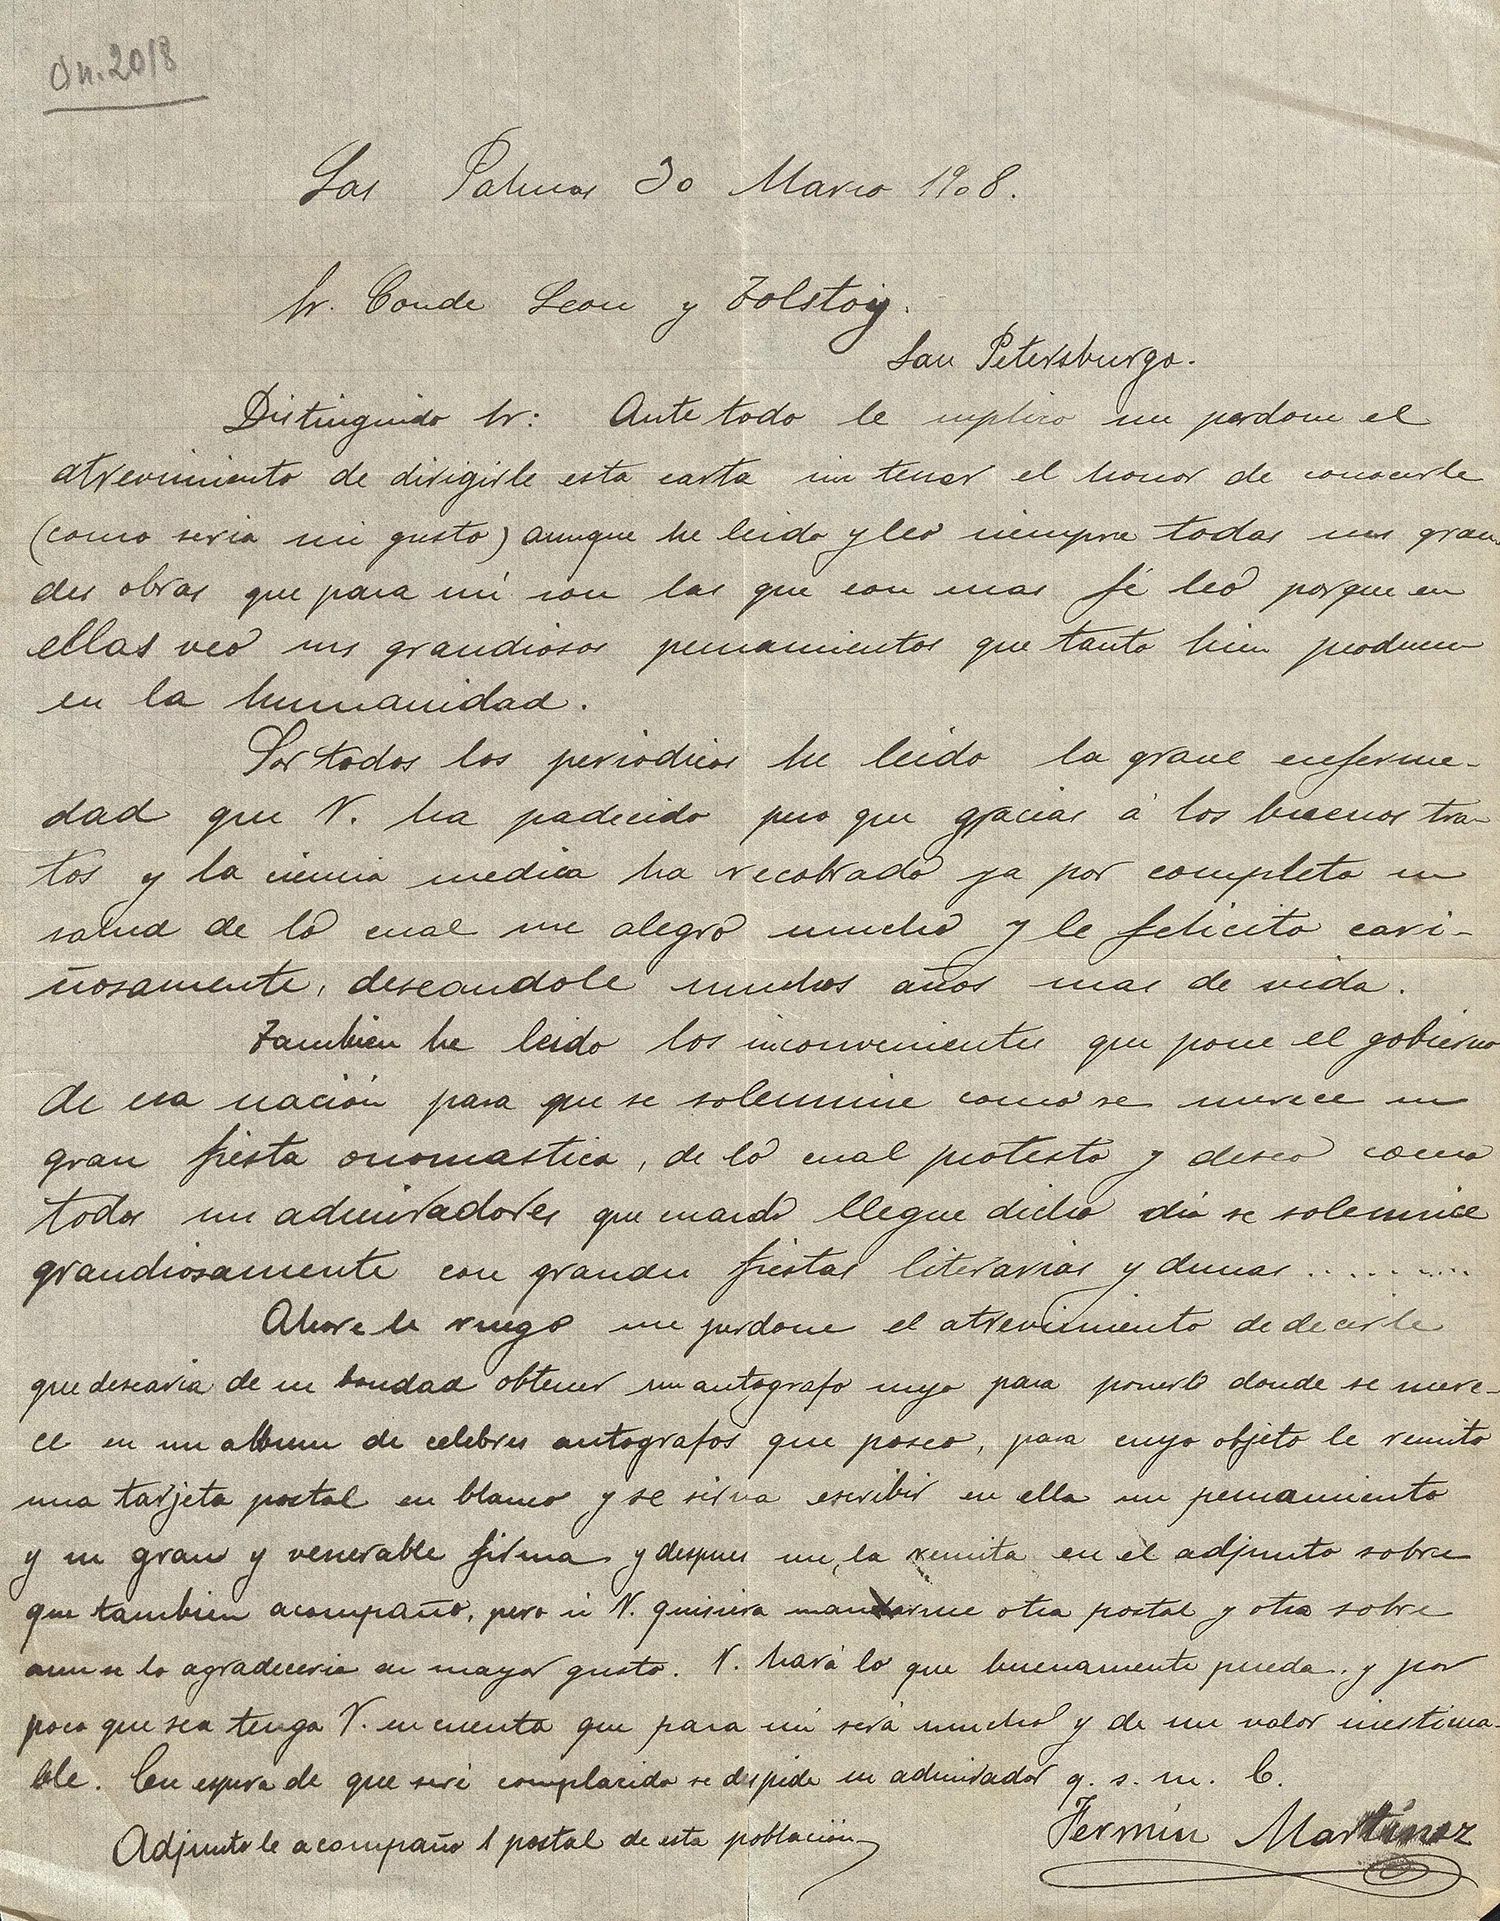 On. 2018
Las Palmas 30 Marzo 1908.
Sr. Conde Leon y Tolstoiy.
San Petersburgo.
Distinguido Sr: Ante todo le suplico me perdone el
atrevimiento de dirigirle esta carta sin tener el honor de conocerle
(como seria mi gusto) aunque he leido y leo siempre todas sus gran
des obras que para mí son las que con mas fé leo porque en
ellas veo sus grandiosos pensamientos que tanto bien producen
en la humanidad.
Por todos los periodicos he leido la grave enferme-
dad que V. ha padecido pero que gracias á los buenos tra-
tos y la ciencia medica ha recobrado ya por completo su
salud de lo cual me alegro mucho y le felicito cari-
ñosamente, deseandole muchos años mas de vida.
Tambien he leido los inconvenientes que pone el gobierno
de esa nación para que se solemnice como se merece su
gran fiesta onomastica, de lo cual protesto y deseo como
todos sus admiradores que cuando llegue dicho dia se solemnice
grandiosamente con grandes fiestas literarias y demas..........
Ahora le ruego me perdone el atrevimiento de decirle
que desearia de su bondad obtener un autografo suyo para ponerlo donde se mere-
ce en un album de celebres autografos que poseo, para cuyo objeto le remito
una tarjeta postal en blanco y se sirva escribir en ella un pensamiento
y su gran y venerable firma y despues me la remita en el adjunto sobre
que tambien acompaño, pero si V. quisiera mandarme otra postal y otro sobre
aun se lo agradeceria en mayor gusto. V. hará lo que buenamente pueda, y por
poco que sea tenga V. en cuenta que para mí será mucho y de un valor inestima-
ble. En espera de que seré complacido se despide su admirador q. s. m. b.
Fermín Martínez
Adjunto le acompaño 1 postal de esta población